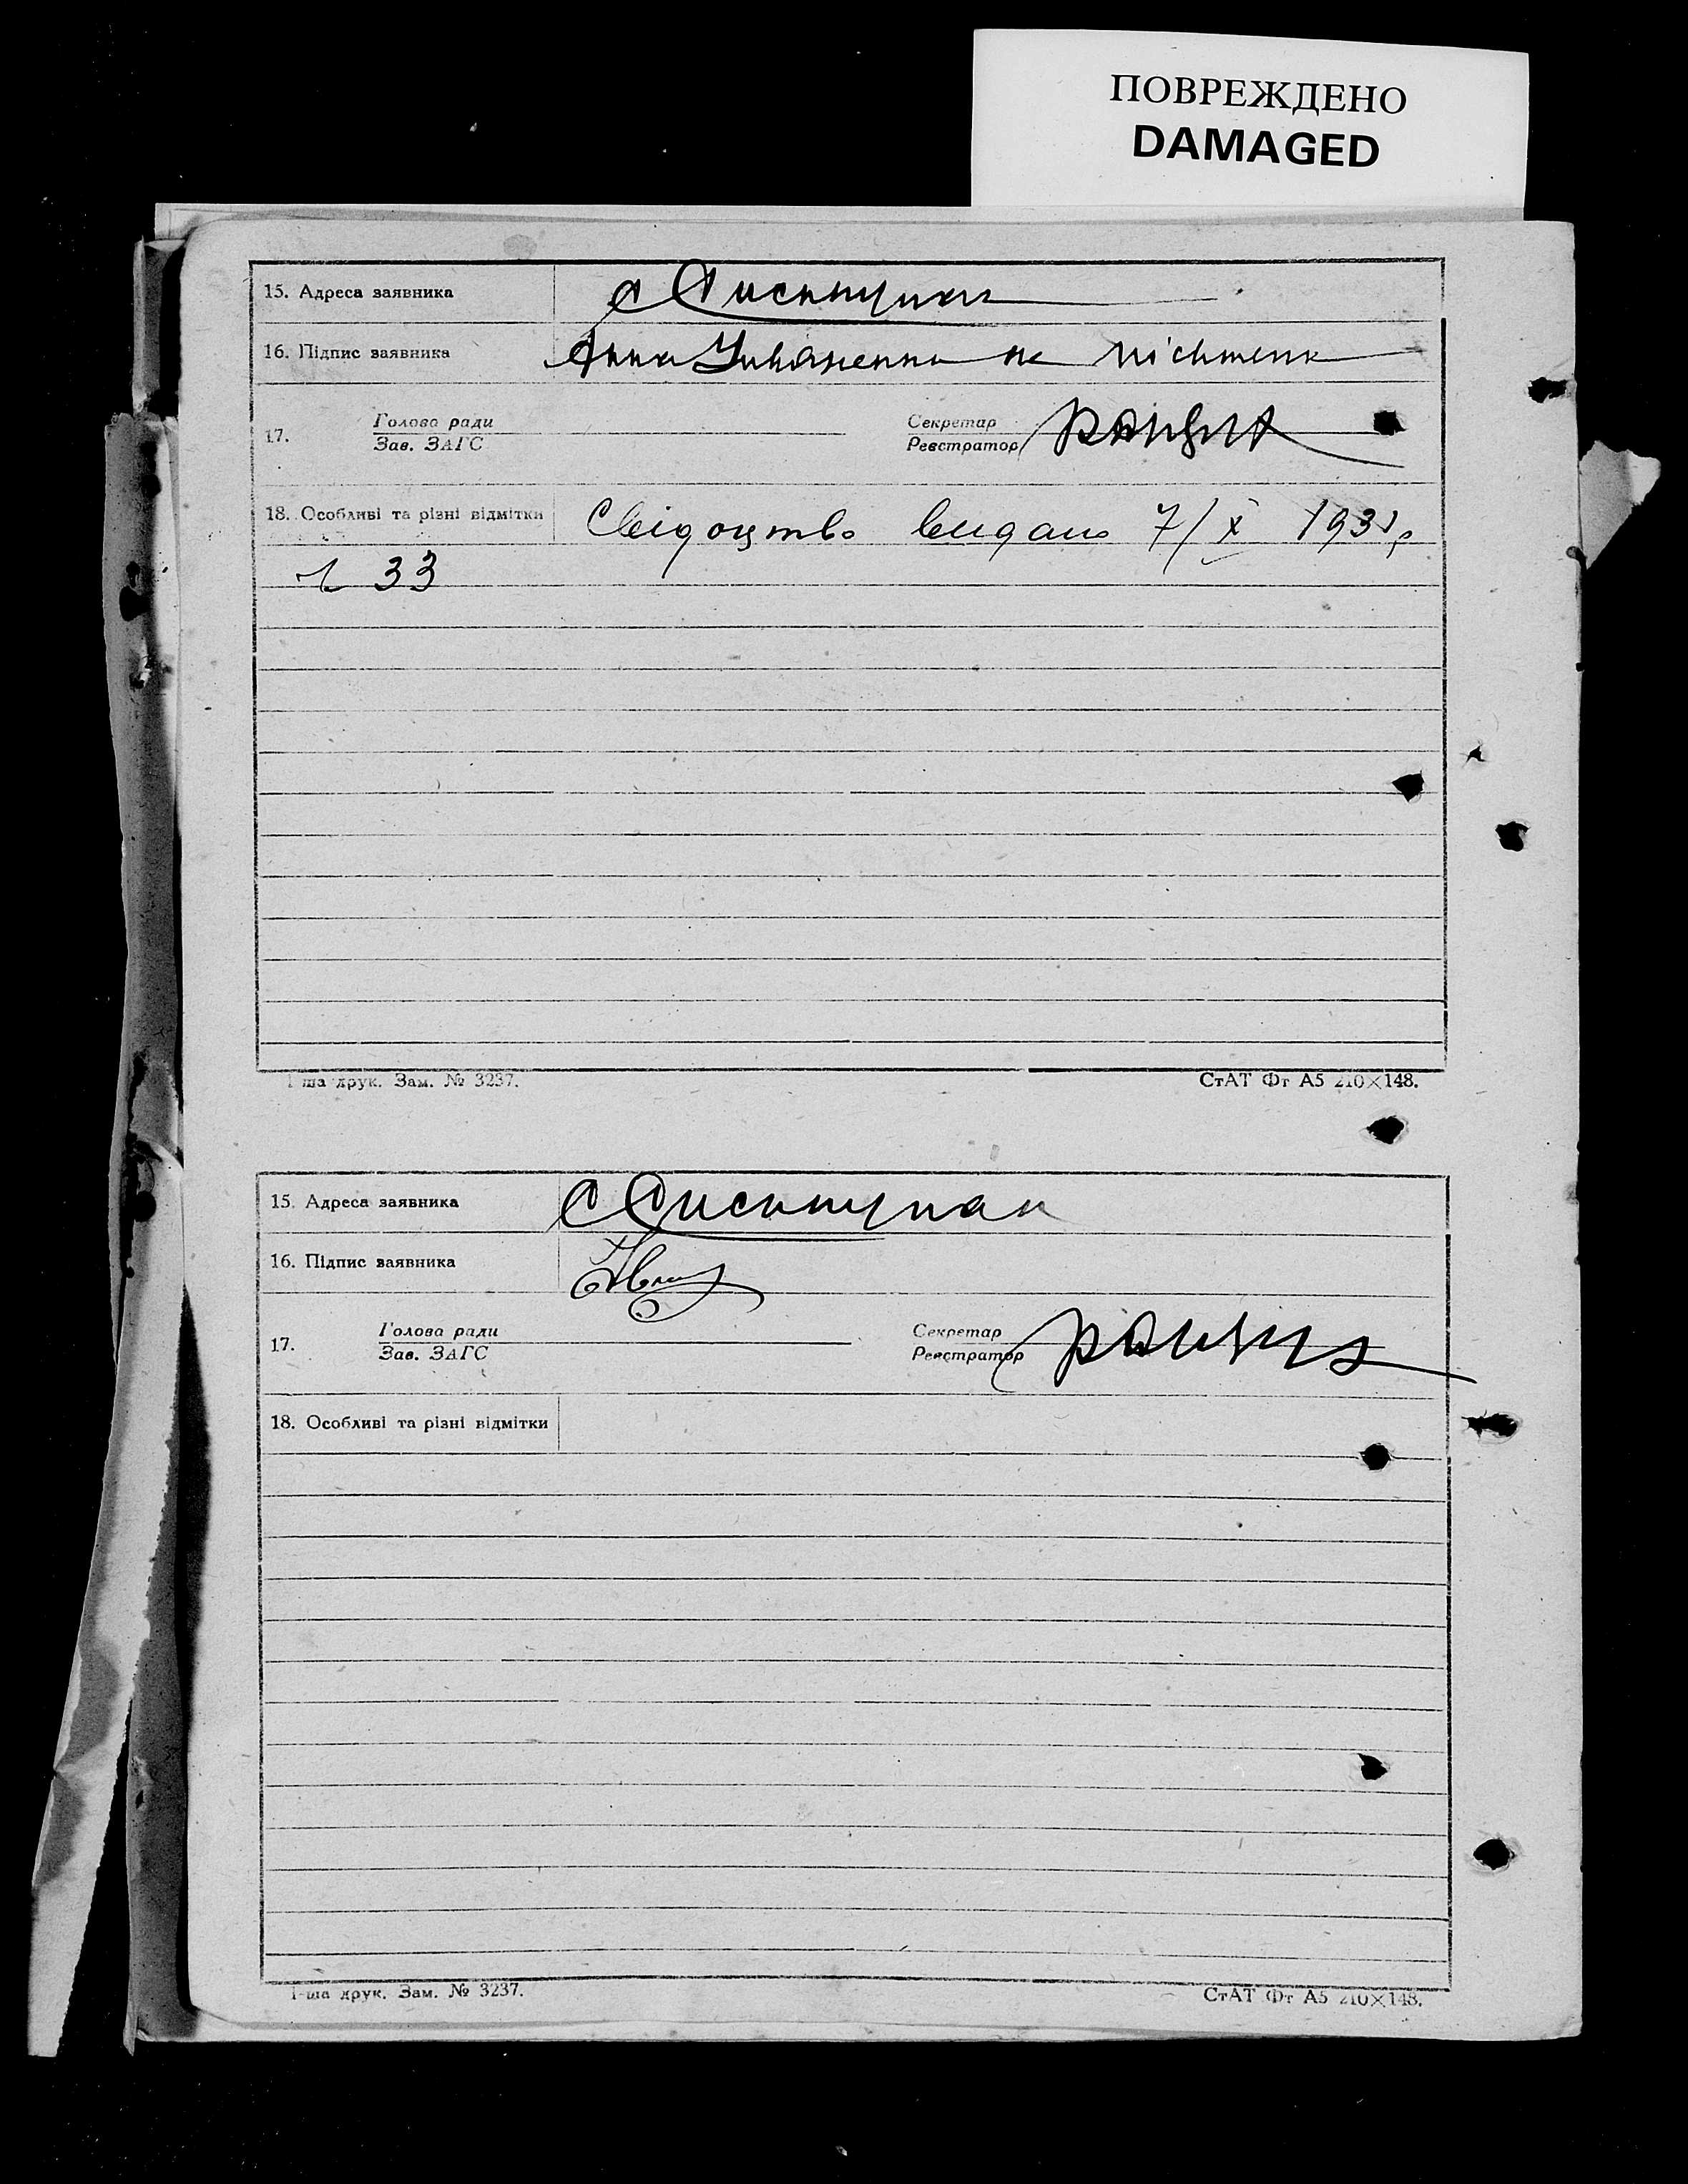 ПОВРЕЖДЕНО
DAMAGED
15. Адреса заявника
16. Підпис заявника Анна
17. Голова ради
Зав. ЗАГС
Секретар
Реєстратор
18. Особливі та різні відмітки Свідоцтво видано 7/X 1931р
33
1-ша друк. Зам. № 3237.
СтАТ Фт А5 210×148.
15. Адреса заявника
16. Підпис заявника
17. Голова ради
Зав. ЗАГС
Секретар
Реєстратор
18. Особливі та різні відмітки
1-ша друк. Зам. № 3237.
СтАТ Фт А5 210×148.